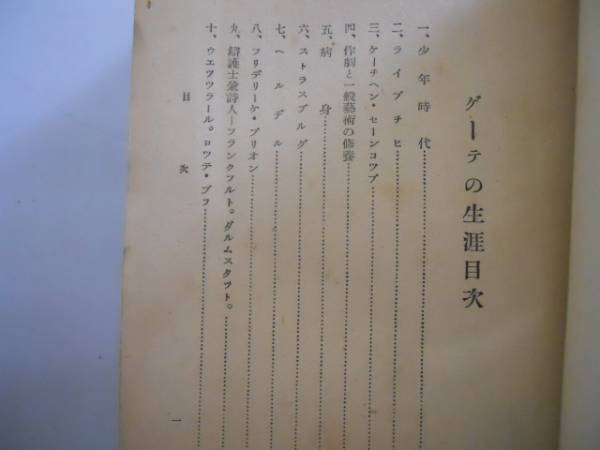 ゲーテの生涯目次
一、少年時代
二、ライプチヒ
三、ケーチヘン・セーンコップ
四、作劇と一般藝術の修養
五、病身
六、ストラスブルグ
七、ヘルデル
八、フリデリーケ・ブリオン
九、辯護士兼詩人―フランクフルト。ダルムスタット。
十、ウエツツラール。ロツテ・ブフ
目次
一